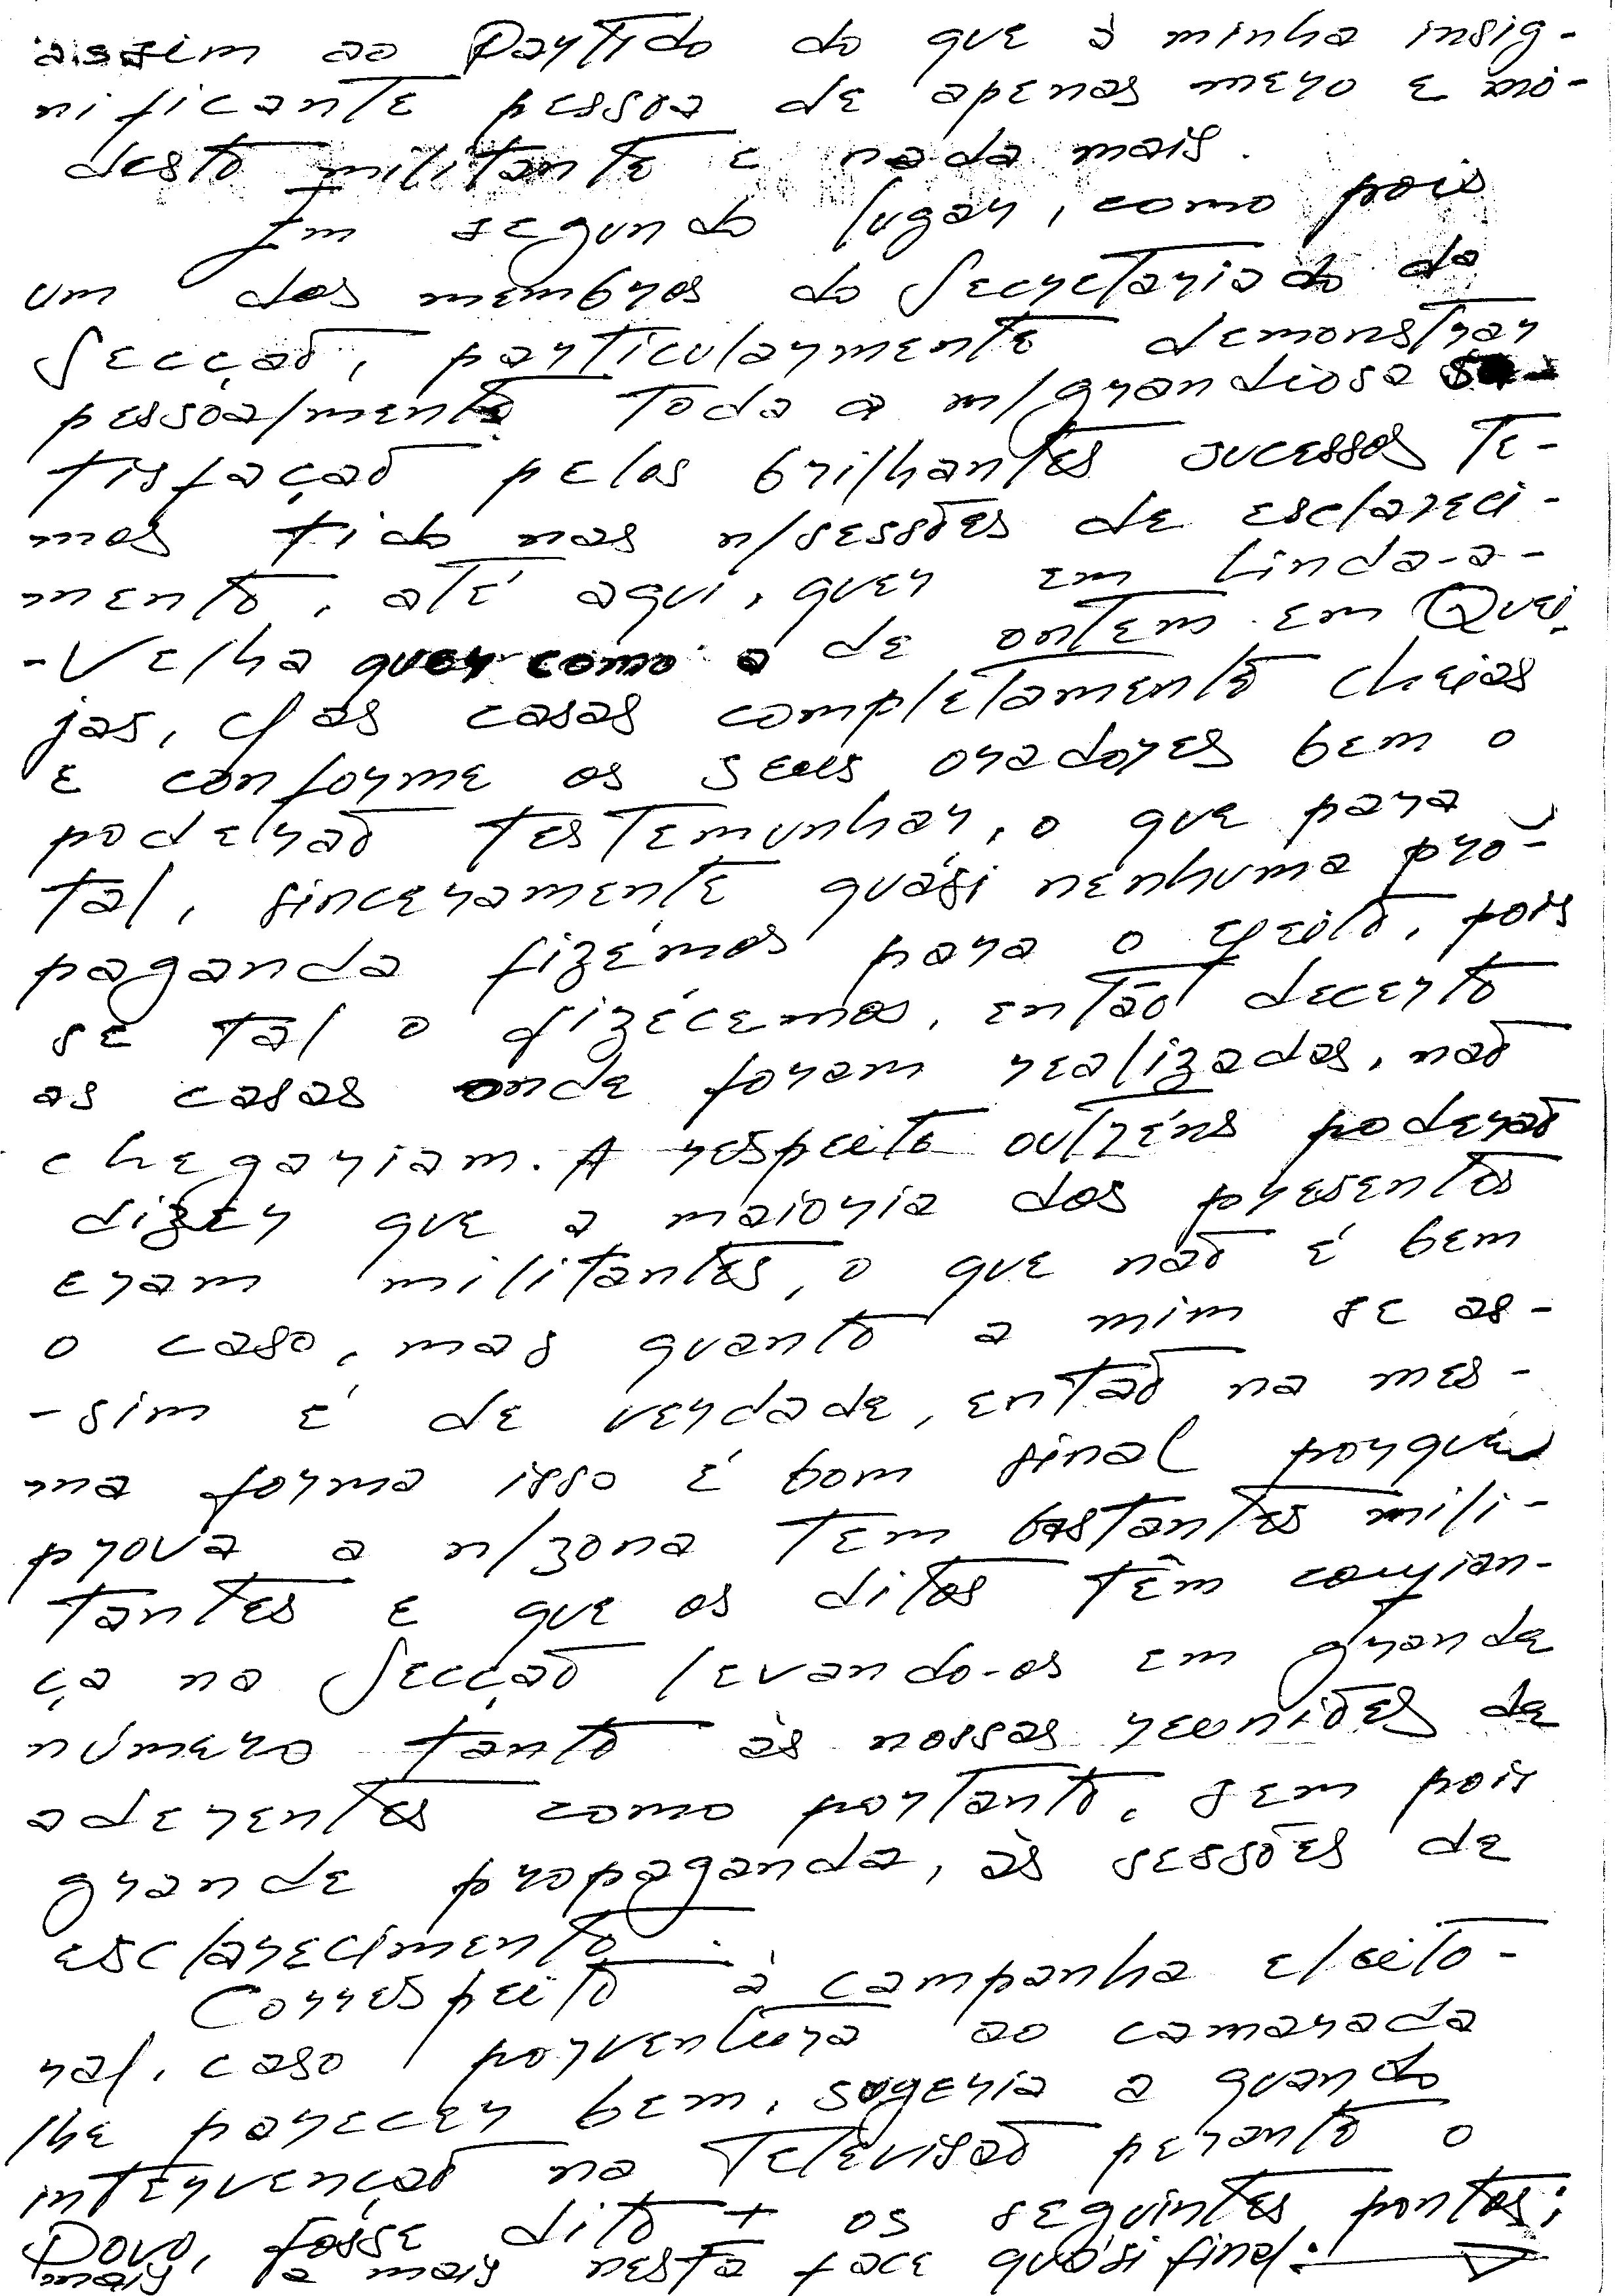 assim ao Partido do que à minha insig-
nificante pessoa de apenas mero e mo-
desto militante e nada mais.
Em segundo lugar, como pois
um dos membros do Secretariado da
Secção, particularmente demonstrar
pessoalmente toda a m/grandiosa sa-
tisfação pelos brilhantes sucessos te-
mos tido nas n/sessões de esclareci-
mento, até aqui, quer em Linda-a-
-Velha quer como a de ontem em Quei-
jas, c/ as casas completamente cheias
e conforme os seus oradores bem o
poderão testemunhar, o que para
tal, sinceramente quási nenhuma pro-
paganda fizémos para o efeito, pois
se tal o fizécemos, então decerto
as casas onde foram realizadas, não
chegariam. A respeito outréns poderão
dizer que a maioria dos presentes
eram militantes, o que não é bem
o caso, mas quanto a mim se as-
-sim é de verdade, então na mes-
ma forma isso é bom sinal porque
prova a n/zona tem bastantes mili-
tantes e que os ditos têm confian-
ça na Secção levando-os em grande
número tanto às nossas reuniões de
aderentes como portanto, sem pois
grande propaganda, às sessões de
esclarecimento.
Correspeito à campanha eleito-
ral, caso porventura ao camarada
lhe parecer bem, sugeria a quando
intervenção na Televisão perante o
Povo, fosse dito + os seguintes pontos;
mais a mais nesta face quási final: